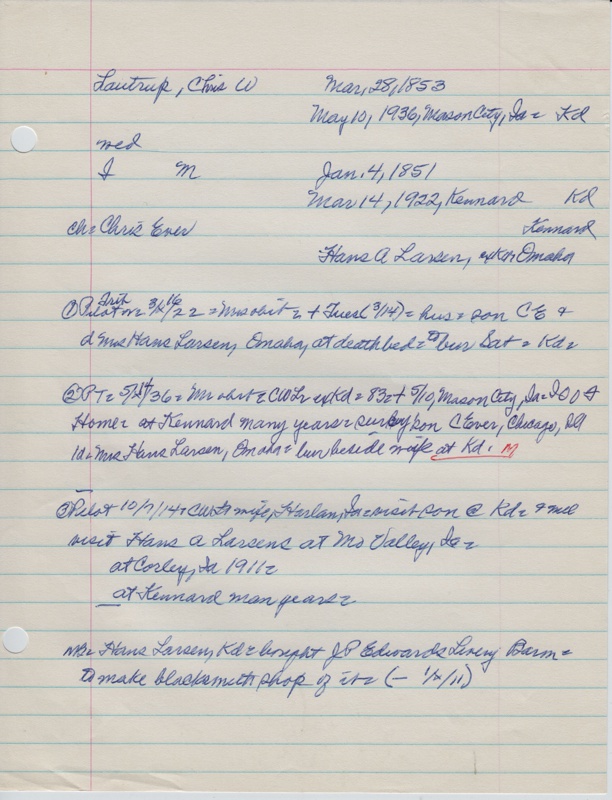 Lautrup, Chris W Mar, 28, 1853
May 10, 1936, Mason City, Ia = Kd
wed
I M Jan. 4, 1851
Mar 14, 1922, Kennard Kd
ch = Chris Ever Kennard
Hans A Larsen, Omaha
① Pilot Trib 3/16/22 = Mrs obit = + Tues (3/14) = hus = son C E &
d Mrs Hans Larsen, Omaha, at deathbed = bur Sat = Kd =
② PT = 5/14/36 = Mr obit = CW Lr Kd = 83 = + 5/10, Mason City, Ia = IOOF
Home = at Kennard many years = sur by son C Ever, Chicago, Ill
1d = Mrs Hans Larsen, Omaha = bur beside wife at Kd. M
③ Pilot 10/7/14 = CW Lr wife, Harlan, Ia = visit son @ Kd = & will
visit Hans A Larsens at Mo Valley, Ia =
at Corley, Ia 1911 =
at Kennard man years =
Hans Larsen, Kd = bought J P Edwards Livery Barn =
to make blacksmith shop of it =